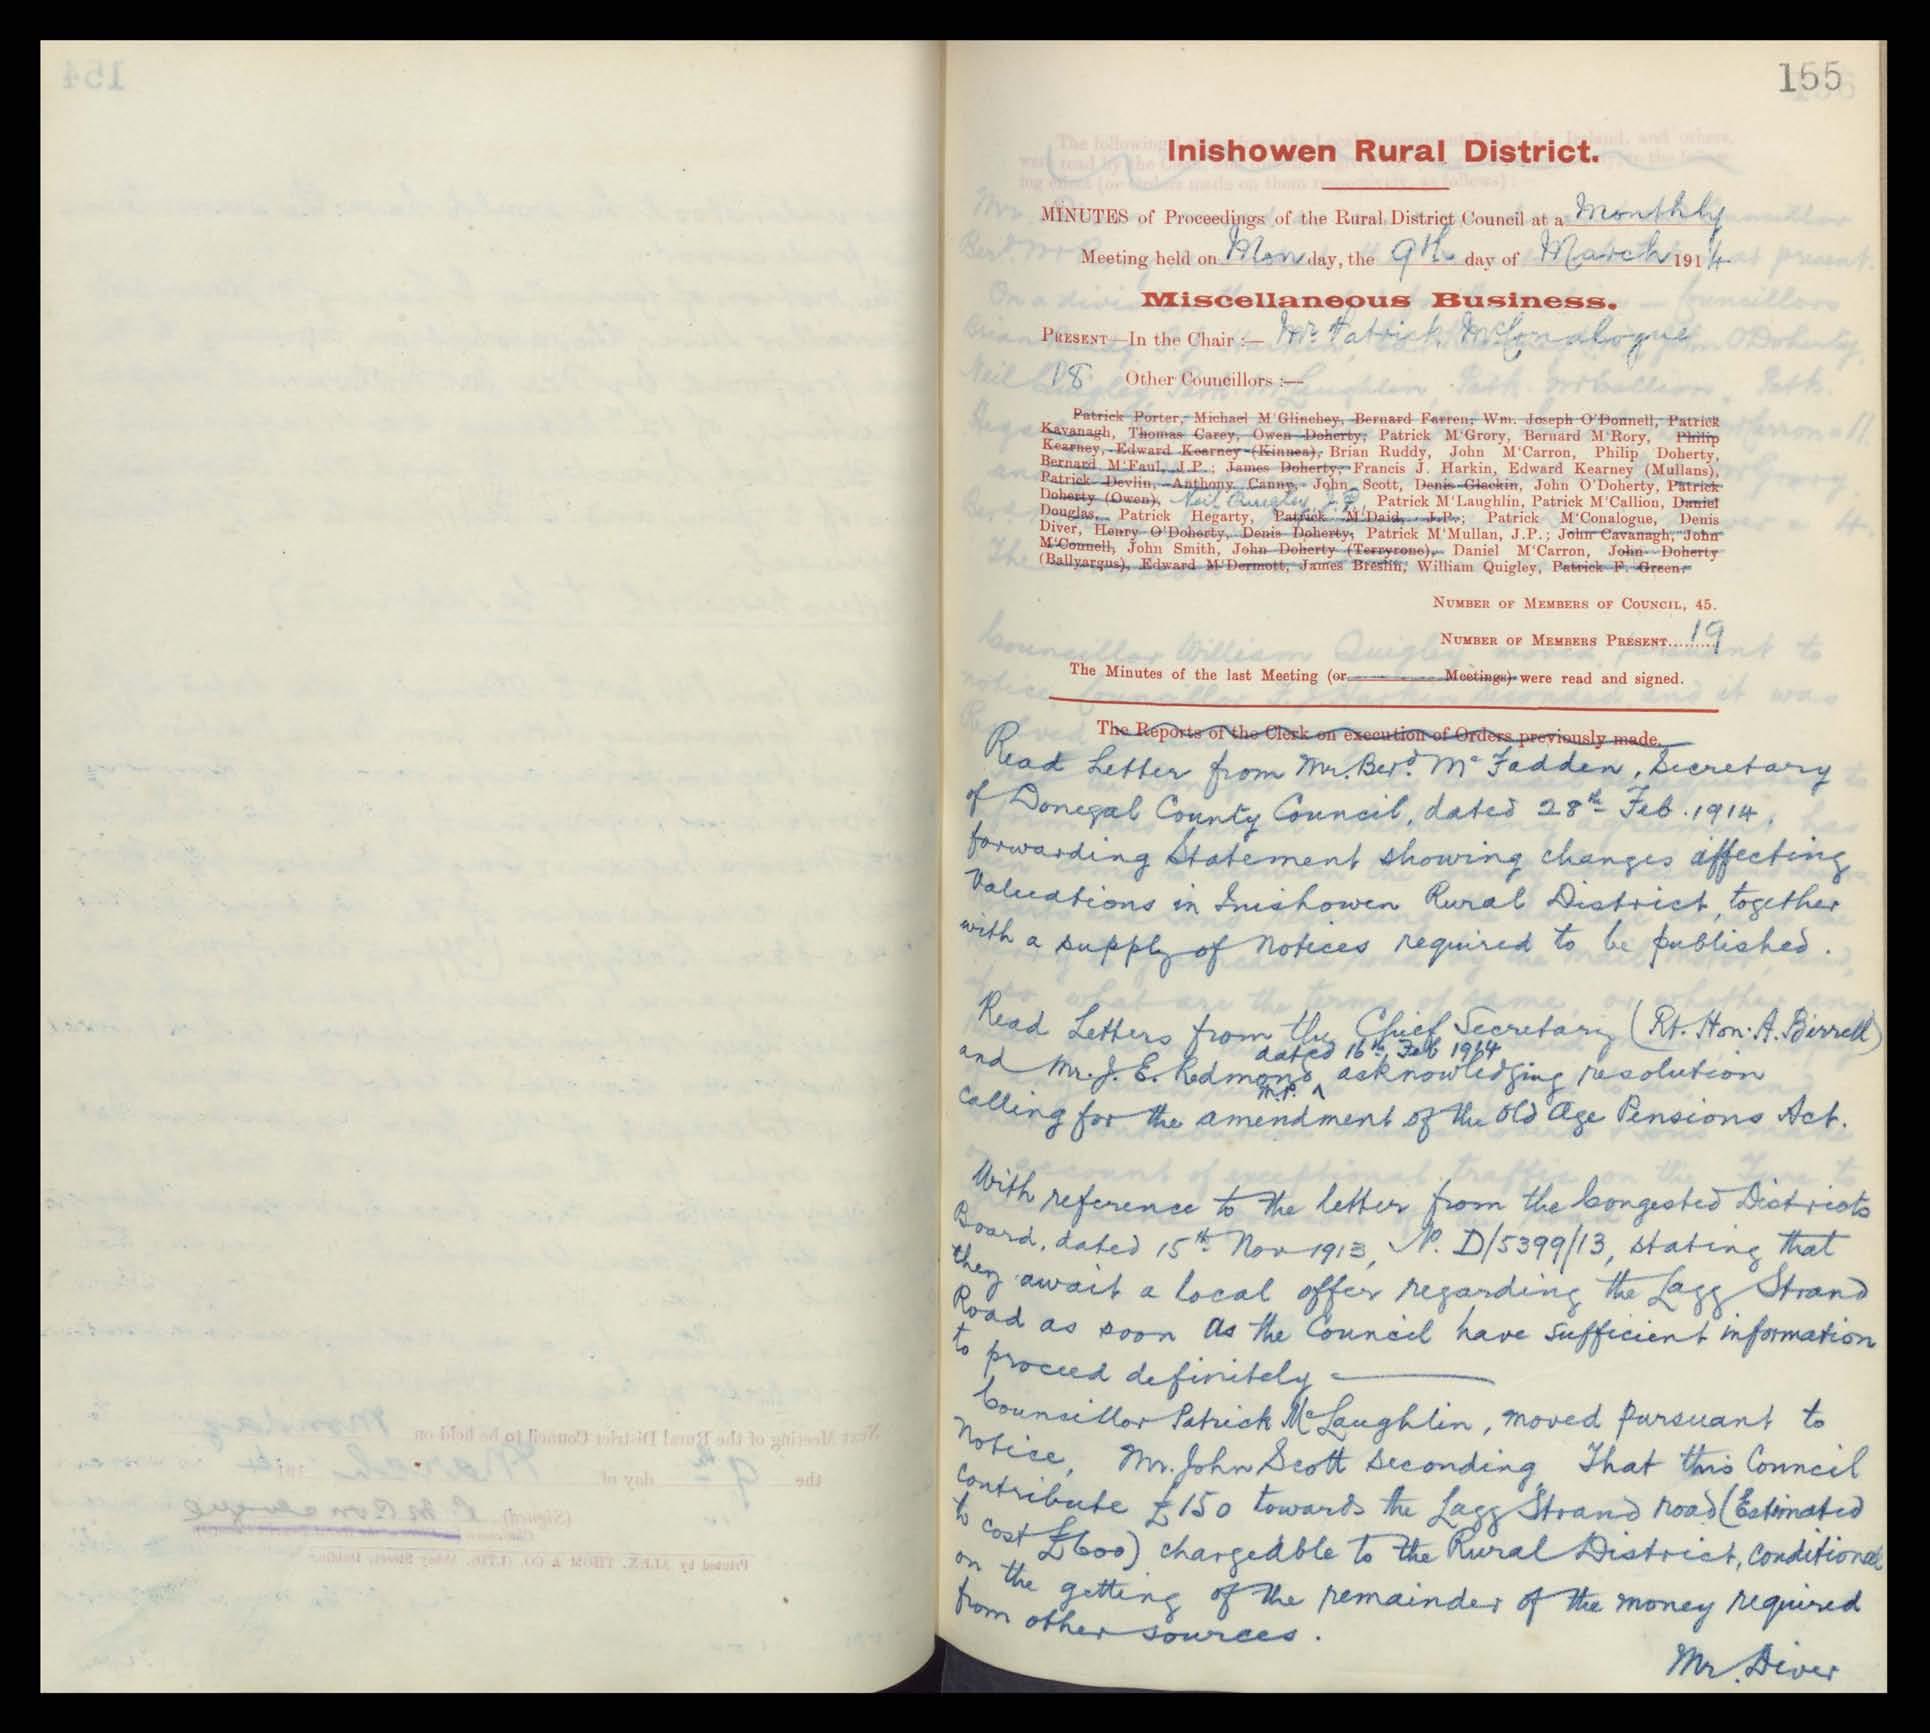 155
Inishowen Rural District.
MINUTES of Proceedings of the Rural District Council at a Monthly
Meeting held on Monday, the 9th day of March 1914.
Miscellaneous Business.
PRESENT—In the Chair :— Mr Patrick McConalogue
18 Other Councillors :—
Patrick Porter, Michael M'Glinchey, Bernard Farren, Wm. Joseph O'Donnell, Patrick
Kavanagh, Thomas Carey, Owen Doherty, Patrick M'Grory, Bernard M'Rory, Philip
Kearney, Edward Kearney (Kinnea), Brian Ruddy, John M'Carron, Philip Doherty,
Bernard M'Faul, J.P.; James Doherty, Francis J. Harkin, Edward Kearney (Mullans),
Patrick Devlin, Anthony Canny, John Scott, Denis Glackin, John O'Doherty, Patrick
Doherty (Owen), Neil Quigley J.P. Patrick M'Laughlin, Patrick M'Callion, Daniel
Douglas, Patrick Hegarty, Patrick M'Daid, J.P.; Patrick M'Conalogue, Denis
Diver, Henry O'Doherty, Denis Doherty, Patrick M'Mullan, J.P.; John Cavanagh, John
M'Connell, John Smith, John Doherty (Terryrone), Daniel M'Carron, John Doherty
(Ballyargus), Edward M'Dermott, James Breslin, William Quigley, Patrick F. Green.
NUMBER OF MEMBERS OF COUNCIL, 45.
NUMBER OF MEMBERS PRESENT......... 19
The Minutes of the last Meeting (or Meetings) were read and signed.
The Reports of the Clerk on execution of Orders previously made.
Read Letter from Mr. Berd. McFadden, Secretary
of Donegal County Council, dated 28th Feb. 1914,
forwarding Statement showing changes affecting
Valuations in Inishowen Rural District, together
with a supply of Notices required to be published.
Read Letters from the Chief Secretary (Rt. Hon. A. Birrell)
dated 16th Feb 1914
and Mr. J. E. Redmond acknowledging resolution
M.P. ^
Calling for the amendment of the Old Age Pensions Act.
With reference to the letter from the Congested Districts
Board, dated 15th Nov 1913, No. D/5399/13, stating that
they await a local offer regarding the Lagg Strand
Road as soon as the Council have sufficient information
to proceed definitely —
Councillor Patrick McLaughlin, moved pursuant to
Notice, Mr. John Scott seconding, That this Council
contribute £150 towards the Lagg Strand road (Estimated
to cost £600) chargeable to the Rural District, conditional
on the getting of the remainder of the money required
from other sources.
Mr. Diver